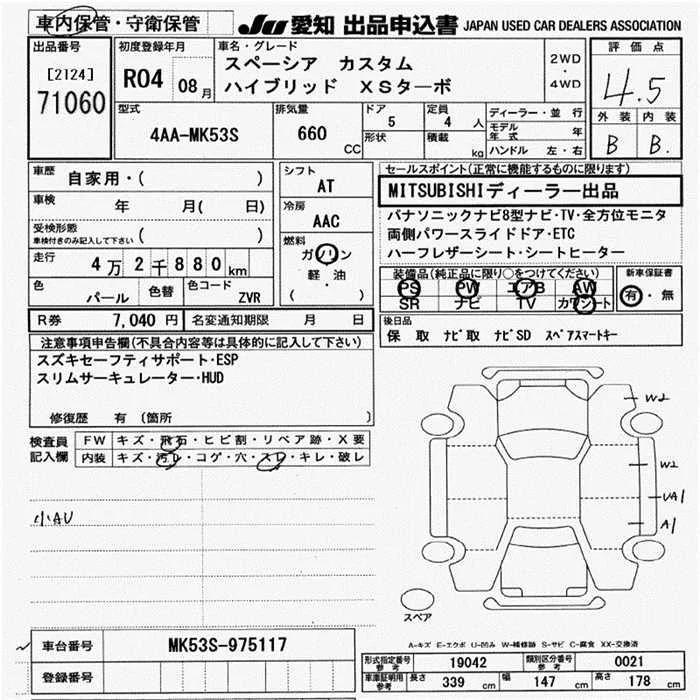 車内保管・守衛保管 JU 愛知 出品申込書 JAPAN USED CAR DEALERS ASSOCIATION
出品番号 [2124] 71060
初度登録年月 R04 08月
車名・グレード
スペーシア カスタム
ハイブリッド XSターボ
2WD・4WD
評価点
4.5
外装 内装
B B.
型式
4AA-MK53S
排気量
660 CC
ドア 5
形状
定員 4 人
積載 kg
ディーラー・並行
モデル年式 年
ハンドル 左・右
車歴 自家用・( )
車検 年 月( 日)
受検形態
車検付きのみ記入して下さい ( )
走行 4万2千880km
色 パール 色替 色コード ZVR
R券 7,040 円 名変通知期限 月 日
シフト
AT
冷房
AAC
燃料
ガソリン
軽・油
( )
セールスポイント(正常に機能するものに限ります)
MITSUBISHIディーラー出品
パナソニックナビ8型ナビ・TV・全方位モニタ
両側パワースライドドア・ETC
ハーフレザーシート・シートヒーター
装備品(純正品に限り○をつけてください)
PS PW エアB AW
SR ナビ TV カワシート
新車保証書
有・無
後日品
保 取 ナビ取 ナビSD スペアスマートキー
注意事項申告欄(不具合内容等は具体的に記入して下さい)
スズキセーフティサポート・ESP
スリムサーキュレーター・HUD
修復歴 有 (箇所 )
検査員記入欄
FW キズ・飛石・ヒビ割・リペア跡・X要
内装 キズ・汚レ・コゲ・穴・スレ・キレ・破レ
小AU
W2
W2
UA1
A1
スペア
A-キズ E-エクボ U-凹み W-補修跡 S-サビ C-腐食 XX-交換済
車台番号 MK53S-975117
登録番号
形式指定番号参考 19042 類別区分番号参考 0021
車庫証明用参考 長さ 339 cm 幅 147 cm 高さ 178 cm